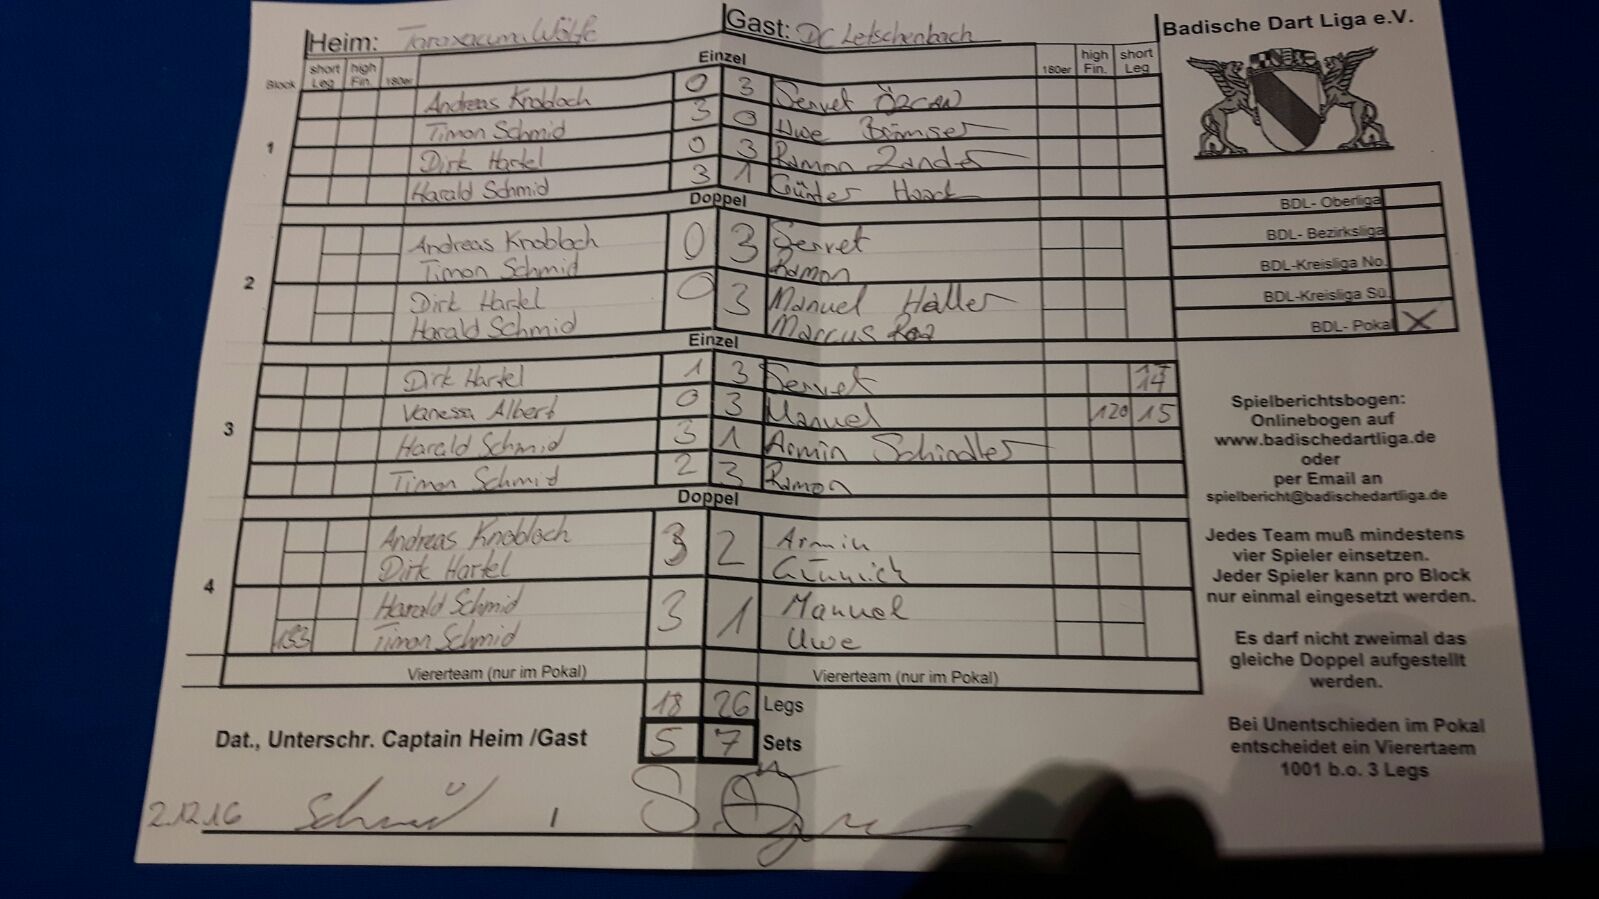 Heim: Taraxacum Wölfe Gast: DC Letschenbach Badische Dart Liga e.V.
Einzel
Block short Leg high Fin. 180er 180er high Fin. short Leg
1
Andreas Knobloch 0 3 Servet ÖZCAN
Timon Schmid 3 0 Uwe Brämser
Dirk Hartel 0 3 Ramon Zander
Harald Schmid 3 1 Günter Haack
Doppel
2
Andreas Knobloch 0 3 Servet
Timon Schmid Ramon
Dirk Hartel 0 3 Manuel Haller
Harald Schmid Marcus
Einzel
3
Dirk Hartel 1 3 Servet 17
Vanessa Albert 0 3 Manuel 120 15
Harald Schmid 3 1 Armin Schindler
Timon Schmid 2 3 Ramon
Doppel
4
Andreas Knobloch 3 2 Armin
Dirk Hartel
Harald Schmid 3 1 Manuel
133 Timon Schmid Uwe
Viererteam (nur im Pokal) Viererteam (nur im Pokal)
18 26 Legs
Dat., Unterschr. Captain Heim /Gast 5 7 Sets
2.12.16 Schmid
BDL- Oberliga
BDL- Bezirksliga
BDL-Kreisliga No.
BDL-Kreisliga Sü.
BDL- Pokal X
Spielberichtsbogen:
Onlinebogen auf
www.badischedartliga.de
oder
per Email an
spielbericht@badischedartliga.de
Jedes Team muß mindestens
vier Spieler einsetzen.
Jeder Spieler kann pro Block
nur einmal eingesetzt werden.
Es darf nicht zweimal das
gleiche Doppel aufgestellt
werden.
Bei Unentschieden im Pokal
entscheidet ein Vierertaem
1001 b.o. 3 Legs